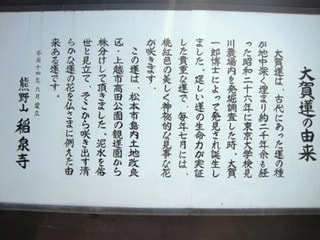 大賀蓮の由来
大賀蓮は、古代にあった蓮の種
が地中深く埋まり約二千年余も経
った昭和二十六年に東京大学検見
川農場内を発掘調査した時、大賀
一郎博士によって発見され誕生し
ました。逞しい蓮の生命力が実証
した貴重な蓮で、毎年七月には、
桃紅色の美しく神秘的な見事な花
が咲きます。
この蓮は、松本市島内土地改良
区・上越市高田公園の観蓮園から
株分けして頂きました。泥水を俗
世と見立て、そこから咲き出す清
らかな蓮の花を仏さまに例えた由
来ある蓮です。
平成十四年六月建立
熊野山 稲泉寺